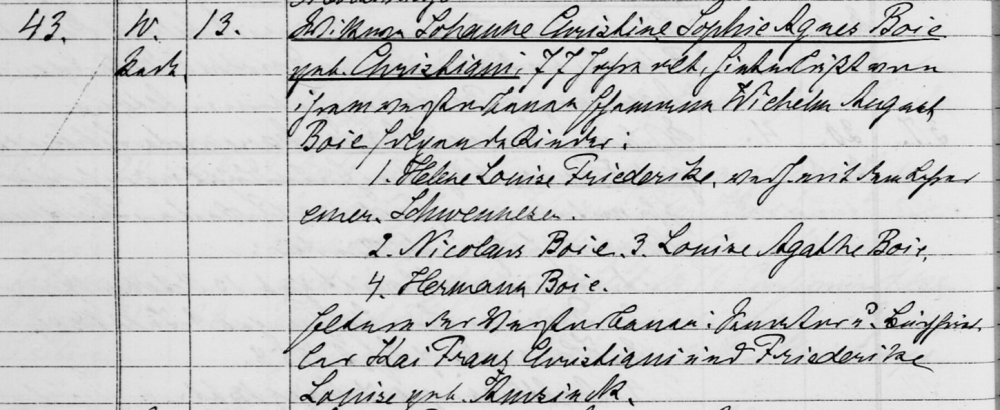 43. W. 13. Wittwe Johanne Christine Sophie Agnes Boie
geb. Christiani, 77 Jahre alt, hinterläßt von
ihrem verstorbenen Ehemann Wilhelm August
Boie folgende Kinder:
1. Helene Louise Friederike, verh. mit dem Lehrer
emer. Schwennesen.
2. Nicolaus Boie. 3. Louise Agathe Boie.
4. Hermann Boie.
Eltern der Verstorbenen: Senator u. Buchhänd-
ler Kai Franz Christiani und Friederike
Louise geb.